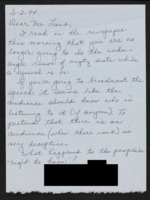 3-2-94
Dear Mr. Lamb,
I read in the newspaper
this morning that you are no
longer going to do the wide-
angle view of empty seats while
a speech is on.
If you're going to broadcast the
speech, it seems like the
audience should know who is
listening to it (if anyone). To
pretend that there is an
audience (when there isn't) is
very deceptive.
What happened to the people's
right to know?